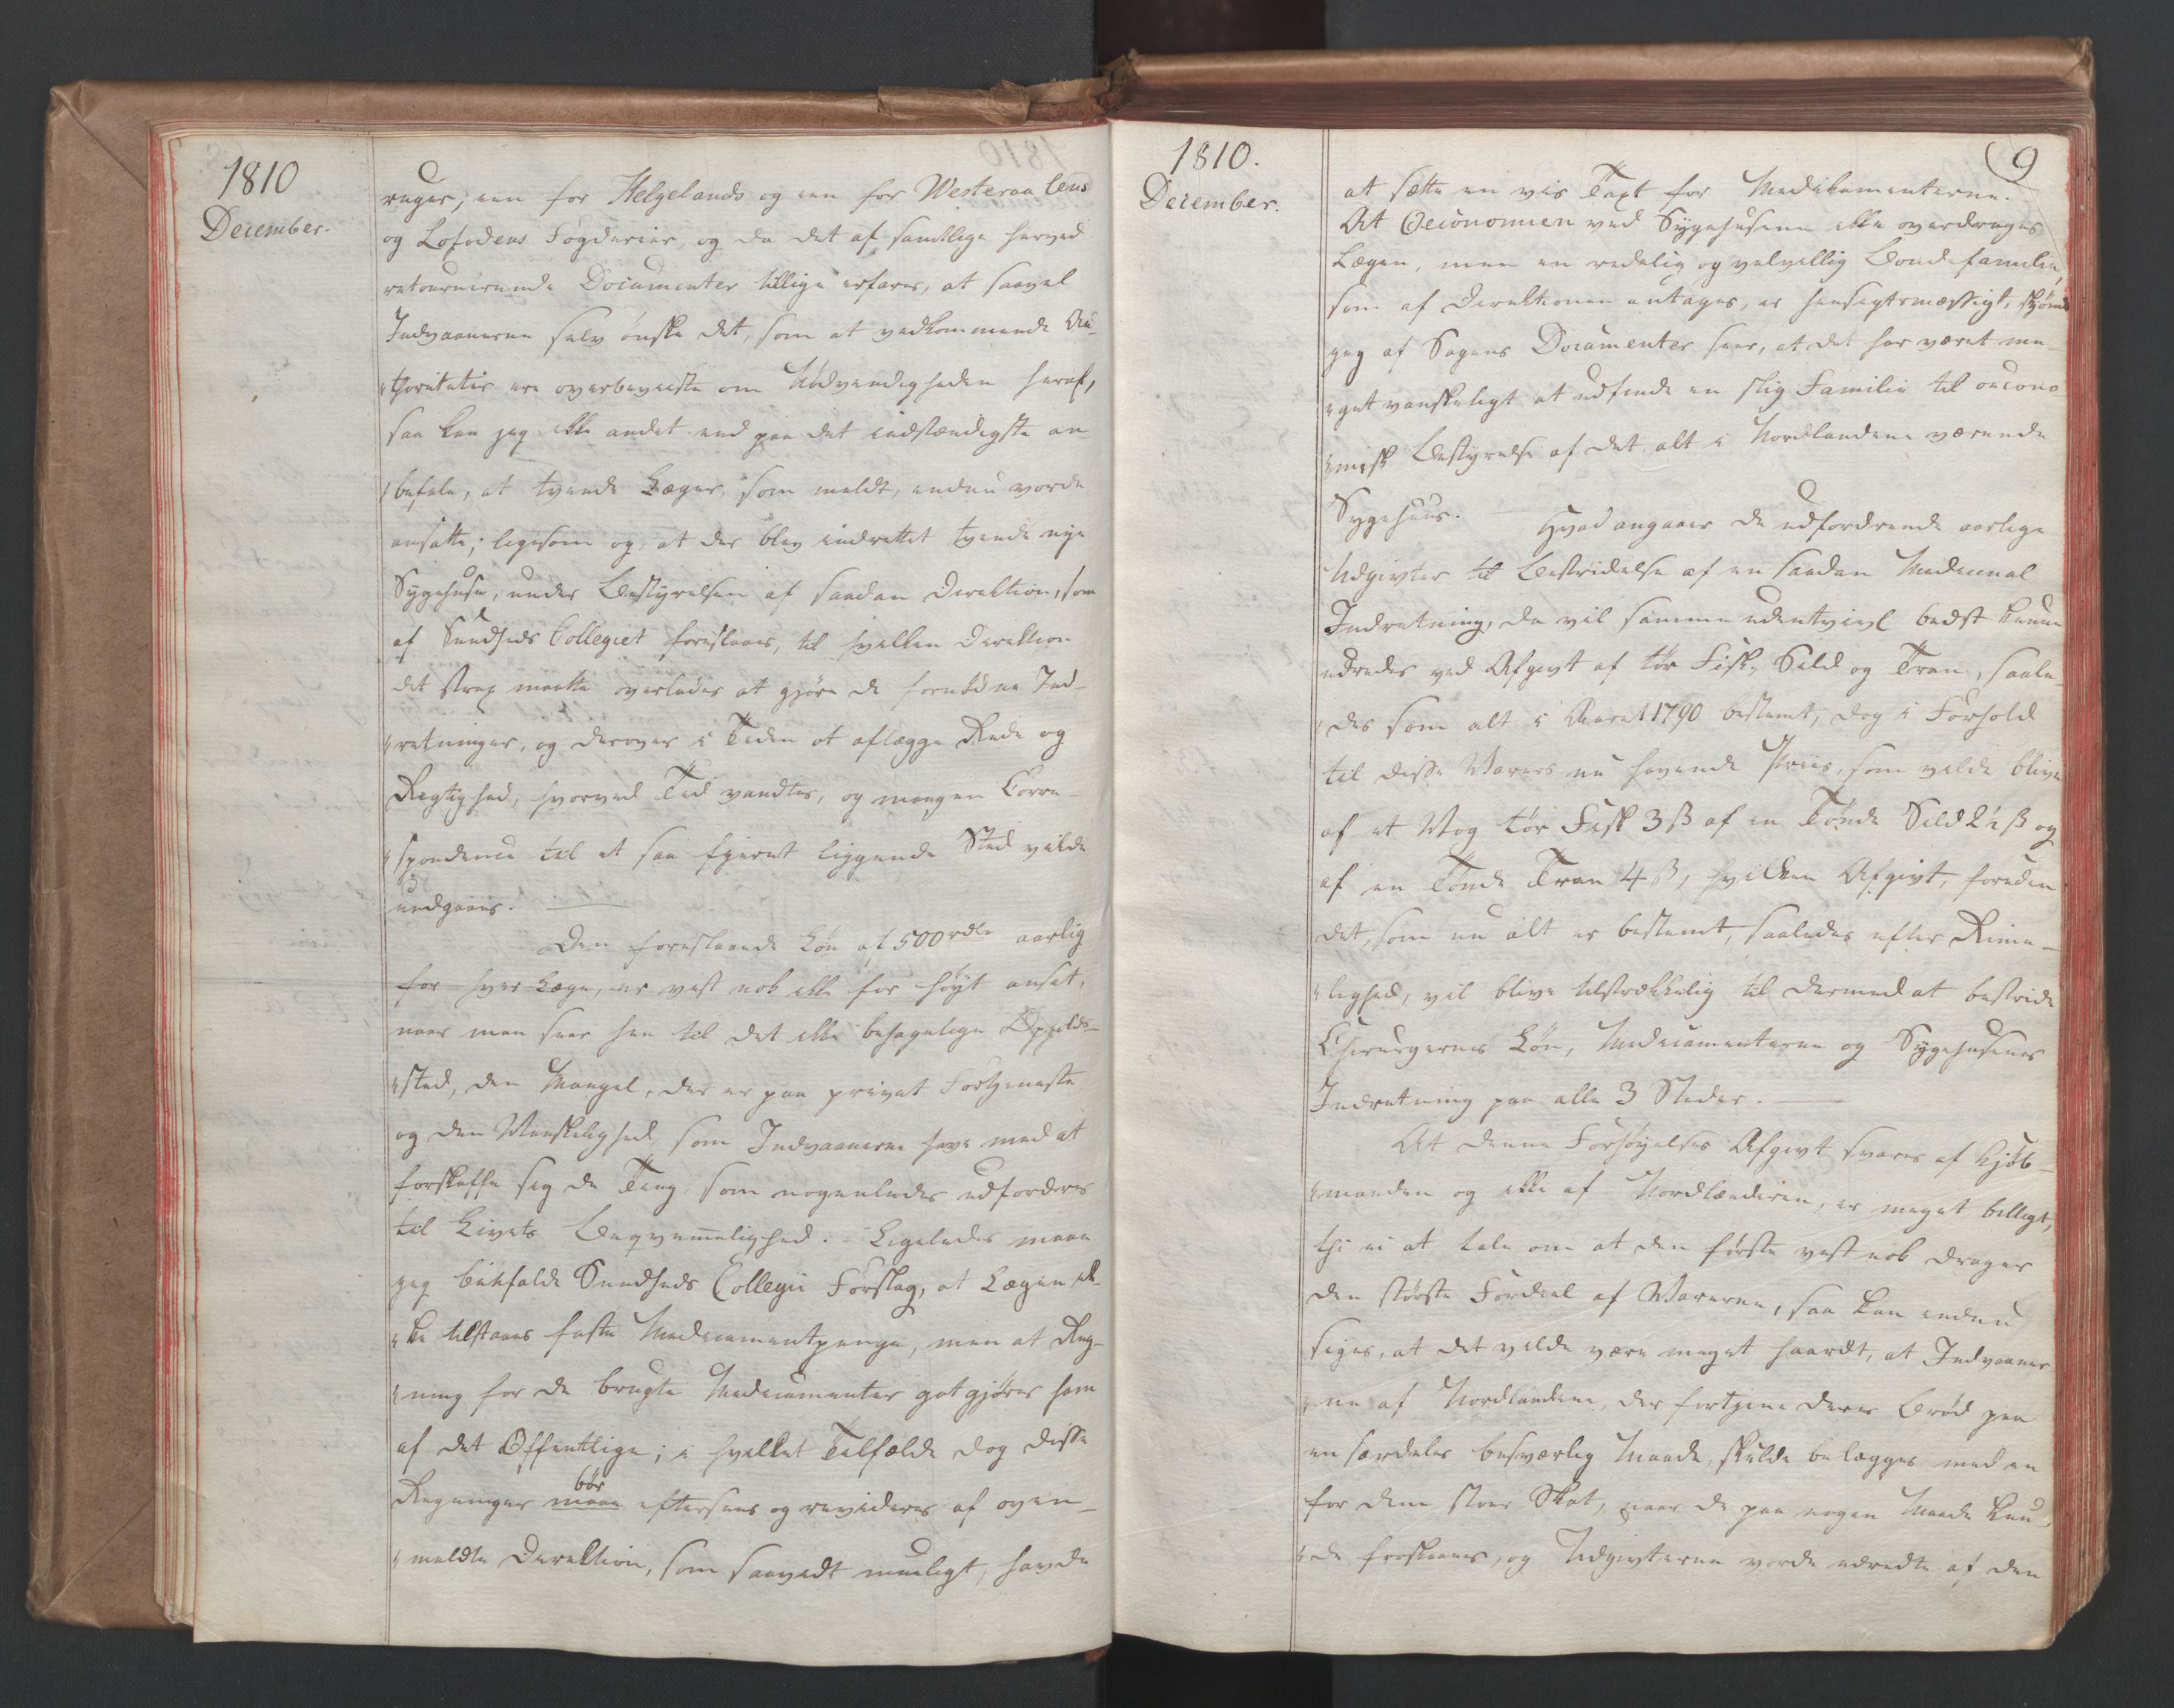 1810
December.
ruger; een for Helgelands og een for Westeraalens
og Lofodens Fogderier, og da det af samtlige herved
retournerende Documenter tillige erfares, at saavel
Indvaanerne selv ønske det, som at vedkommende Au-
thoriteter ere overbeviiste om Nødvendigheden heraf,
saa kan jeg ikke andet end paa det indstændigste an-
befale, at tvende Læger, som meldt, endnu vorde
ansatte; ligesom og, at der blev indrettet tvende nye
Sygehuse, under Bestyrelsen af saadan Direktion, som
af Sundheds Collegiet foreslaaes, til hvilken Direktion
det strax maatte overlades at gjøre de fornødne Ind-
retninger, og derover i Tiden at aflægge Rede og
Rigtighed, hvorved Tid vandtes, og megen Corre-
spondence til et saa fjernt liggende Sted vilde
undgaaes.
Den foreslaaede Løn af 500 rdlr aarlig
for hver Læge, er vist nok ikke for høyt ansat,
naar man seer hen til det ikke behagelige Opholds-
sted, den Mangel, der er paa privat Fortjeneste
og den Vanskelighed, som Indvaanerne have med at
forskaffe sig de Ting, som nogenledes udfordres
til Livets Beqvemmelighed. Ligeledes maae
jeg biefalde Sundheds Collegii Forslag, at Lægen ik-
ke tilstaaes faste Medicamentpenge, men at Reg-
ning for de brugte Medicamenter gotgjøres ham
af det Offentlige; i hvilket Tilfælde dog disse
Regninger maae bør eftersees og revideres af oven-
meldte Direktion, som saavidt mueligt, havde
1810.
December.
9
at sætte en vis Taxt for Medikamenterne.
At Oeconomien ved Sygehusene ikke overdrages
Lægen, men en redelig og velvillig Bondefamilie,
som af Direktionen antages, er hensigtsmæssigt, skjønt
jeg af Sagens Documenter seer, at det har været me-
get vanskeligt at udfinde en slig Familie til oecono-
misk Bestyrelse af det alt i Nordlandene værende
Sygehuus.
Hvad angaaer de udfordrende aarlige
Udgivter til Bestridelse af en saadan Medicinal
Indretning, da vil samme udentvivl bedst kunne
udredes ved Afgivt af tør Fisk, Sild og Tran, saale-
des som alt i Aaret 1790 bestemt, dog i Forhold
til disse Varers nu havende Priis, som vilde blive
af et Vog tør Fisk 3 ß af en Tønde Sild 2½ ß og
af en Tønde Tran 4 ß, hvilken Afgivt, foruden
det, som nu alt er bestemt, saaledes efter Rime-
lighed, vil blive tilstrækkelig til dermed at bestride
Chirurgernes Løn, Medicamenterne og Sygehusenes
Indretning paa alle 3 Steder.
At denne Forhøyelses Afgivt svares af Kjøb-
manden og ikke af Nordlænderen, er meget billigt,
thi ei at tale om at den første vist nok drager
den største Fordeel af Varerne, saa kan endnu
siges, at det vilde være meget haardt, at Indvaaner-
ne af Nordlandene, der fortjene deres Brød paa
en særdeles besværlig Maade, skulde belægges med en
for dem stoer Skat, naar de paa nogen Maade kun-
de forskaanes, og Udgivterne vorde udredte af den